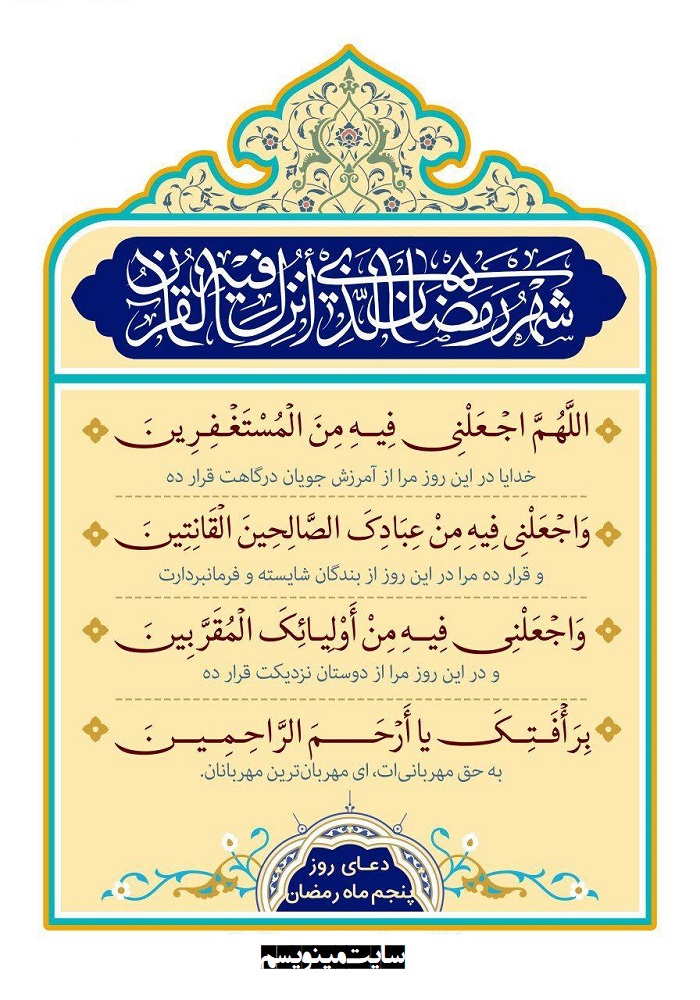 شهر رمضان الذی أنزل فیه القرآن
اللَّهُمَّ اجْعَلْنِی فِیهِ مِنَ الْمُسْتَغْفِرِینَ
خدایا در این روز مرا از آمرزش جویان درگاهت قرار ده
وَاجْعَلْنِی فِیهِ مِنْ عِبَادِکَ الصَّالِحِینَ الْقَانِتِینَ
و قرار ده مرا در این روز از بندگان شایسته و فرمانبردارت
وَاجْعَلْنِی فِیهِ مِنْ أَوْلِیائِکَ الْمُقَرَّبِینَ
و در این روز مرا از دوستان نزدیکت قرار ده
بِرَأْفَتِکَ یا أَرْحَمَ الرَّاحِمِینَ
به حق مهربانی‌ات، ای مهربان‌ترین مهربانان.
دعای روز
پنجم ماه رمضان
سایت مینویسم